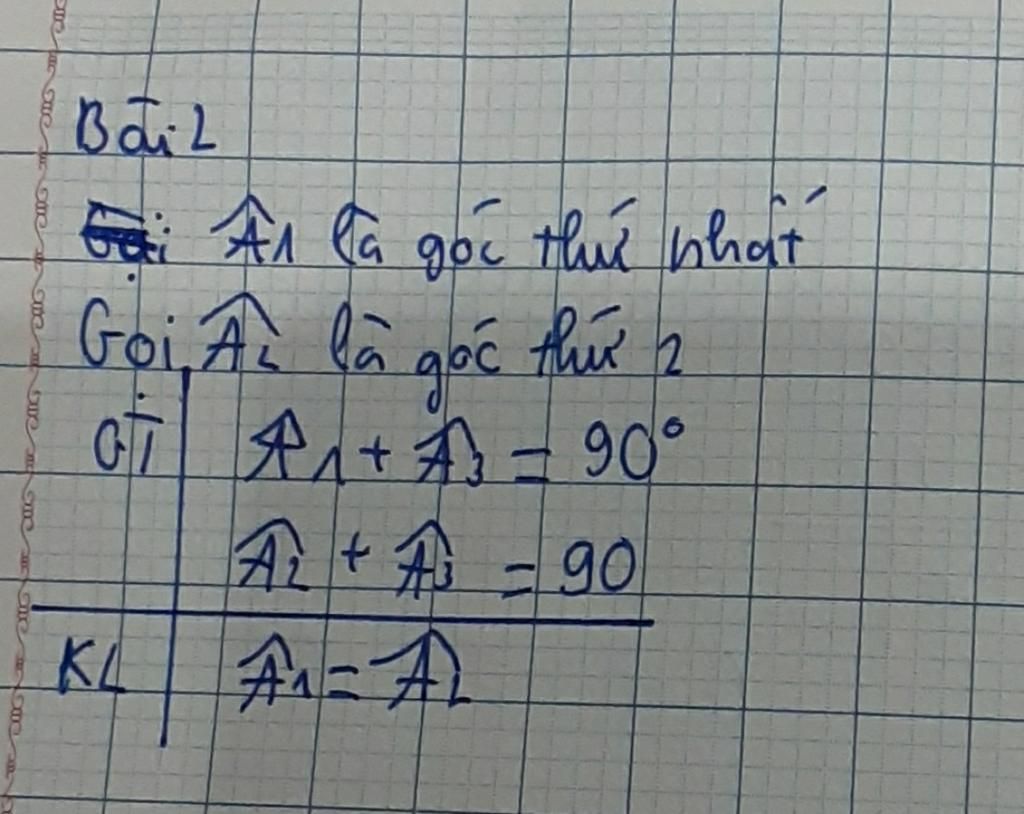 Bài 2
Gọi Â1 là góc thứ nhất
Gọi Â2 là góc thứ 2
GT Â1 + Â3 = 90°
Â2 + Â3 = 90
KL Â1 = Â2